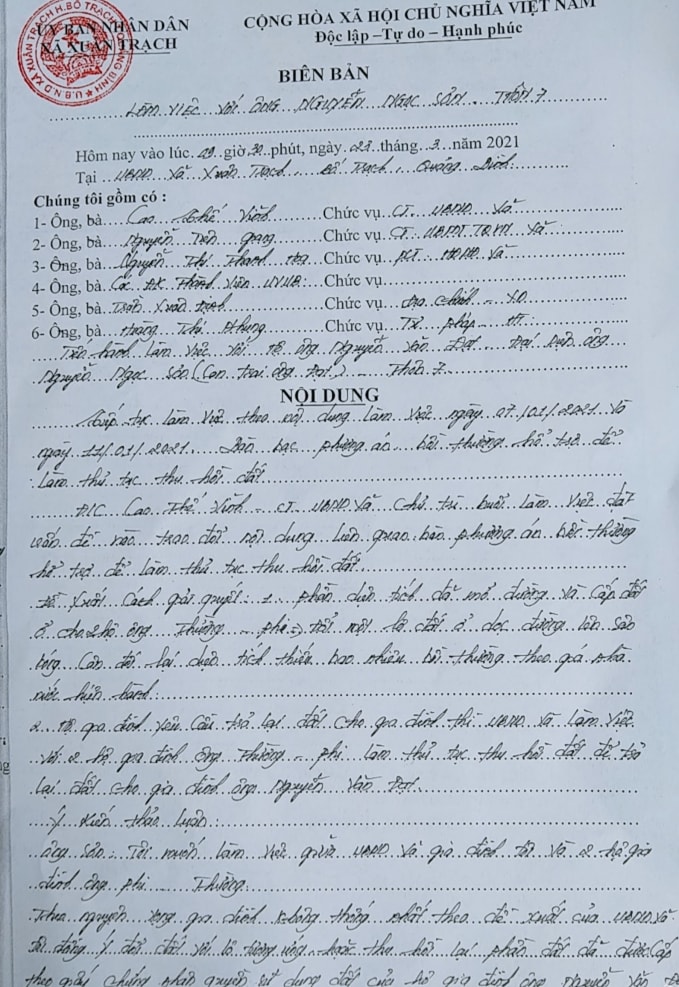 ỦY BAN NHÂN DÂN
XÃ XUÂN TRẠCH
CỘNG HÒA XÃ HỘI CHỦ NGHĨA VIỆT NAM
Độc lập –Tự do – Hạnh phúc
BIÊN BẢN
Làm việc với ông Nguyễn Ngọc Sản - Thôn 7
Hôm nay vào lúc giờ 30 phút, ngày tháng 3 năm 2021
Tại UBND xã Xuân Trạch, Bố Trạch, Quảng Bình
Chúng tôi gồm có :
1- Ông, bà Cao Thế Vinh Chức vụ CT UBND xã
2- Ông, bà Nguyễn Tiến Chức vụ CT UBMTTQVN xã
3- Ông, bà Nguyễn Thị Thanh Chức vụ PCT HĐND xã
4- Ông, bà Các Thành viên Chức vụ
5- Ông, bà Trần Xuân Chức vụ Địa chính - XD
6- Ông, bà Hoàng Thị Chức vụ Tư pháp - HT
Tiến hành làm việc với hộ ông Nguyễn Văn Đạt đại diện ông
Nguyễn Ngọc Sản (con trai ông Đạt) - Thôn 7
NỘI DUNG
Tiếp tục làm việc theo nội dung làm việc ngày 07/01/2021 và
ngày 11/01/2021 Bàn bạc phương án bồi thường hỗ trợ để
làm thủ tục thu hồi đất
Đ/C Cao Thế Vinh - CT UBND xã chủ trì buổi làm việc đặt
vấn đề trao đổi nội dung liên quan bàn phương án bồi thường
hỗ trợ để làm thủ tục thu hồi đất
Đề xuất cách giải quyết: 1. phần diện tích đã mở đường và cấp đất
ở cho 2 hộ ông Thường - Phi đổi một lô đất ở dọc đường lên sân
bóng Cân đối lại diện tích thiếu bao nhiêu bồi thường theo giá nhà
nước hiện hành:
2. gia đình yêu cầu trả lại đất cho gia đình thì UBND xã làm việc
với 2 hộ gia đình ông Thường - Phi làm thủ tục thu hồi đất để trả
lại đất cho gia đình ông Nguyễn Văn Đạt
Ý kiến thảo luận:
Ông Sản: Tôi muốn làm việc giữa UBND và gia đình tôi và 2 hộ gia
đình ông Phi Thường:
nguyện vọng gia đình không thống nhất theo đề xuất của UBND xã
tôi đồng ý đổi đất với lô tương ứng hoặc thu hồi lại phần đất đã được cấp
theo giấy chứng nhận quyền sử dụng đất của hộ gia đình ông Nguyễn Văn